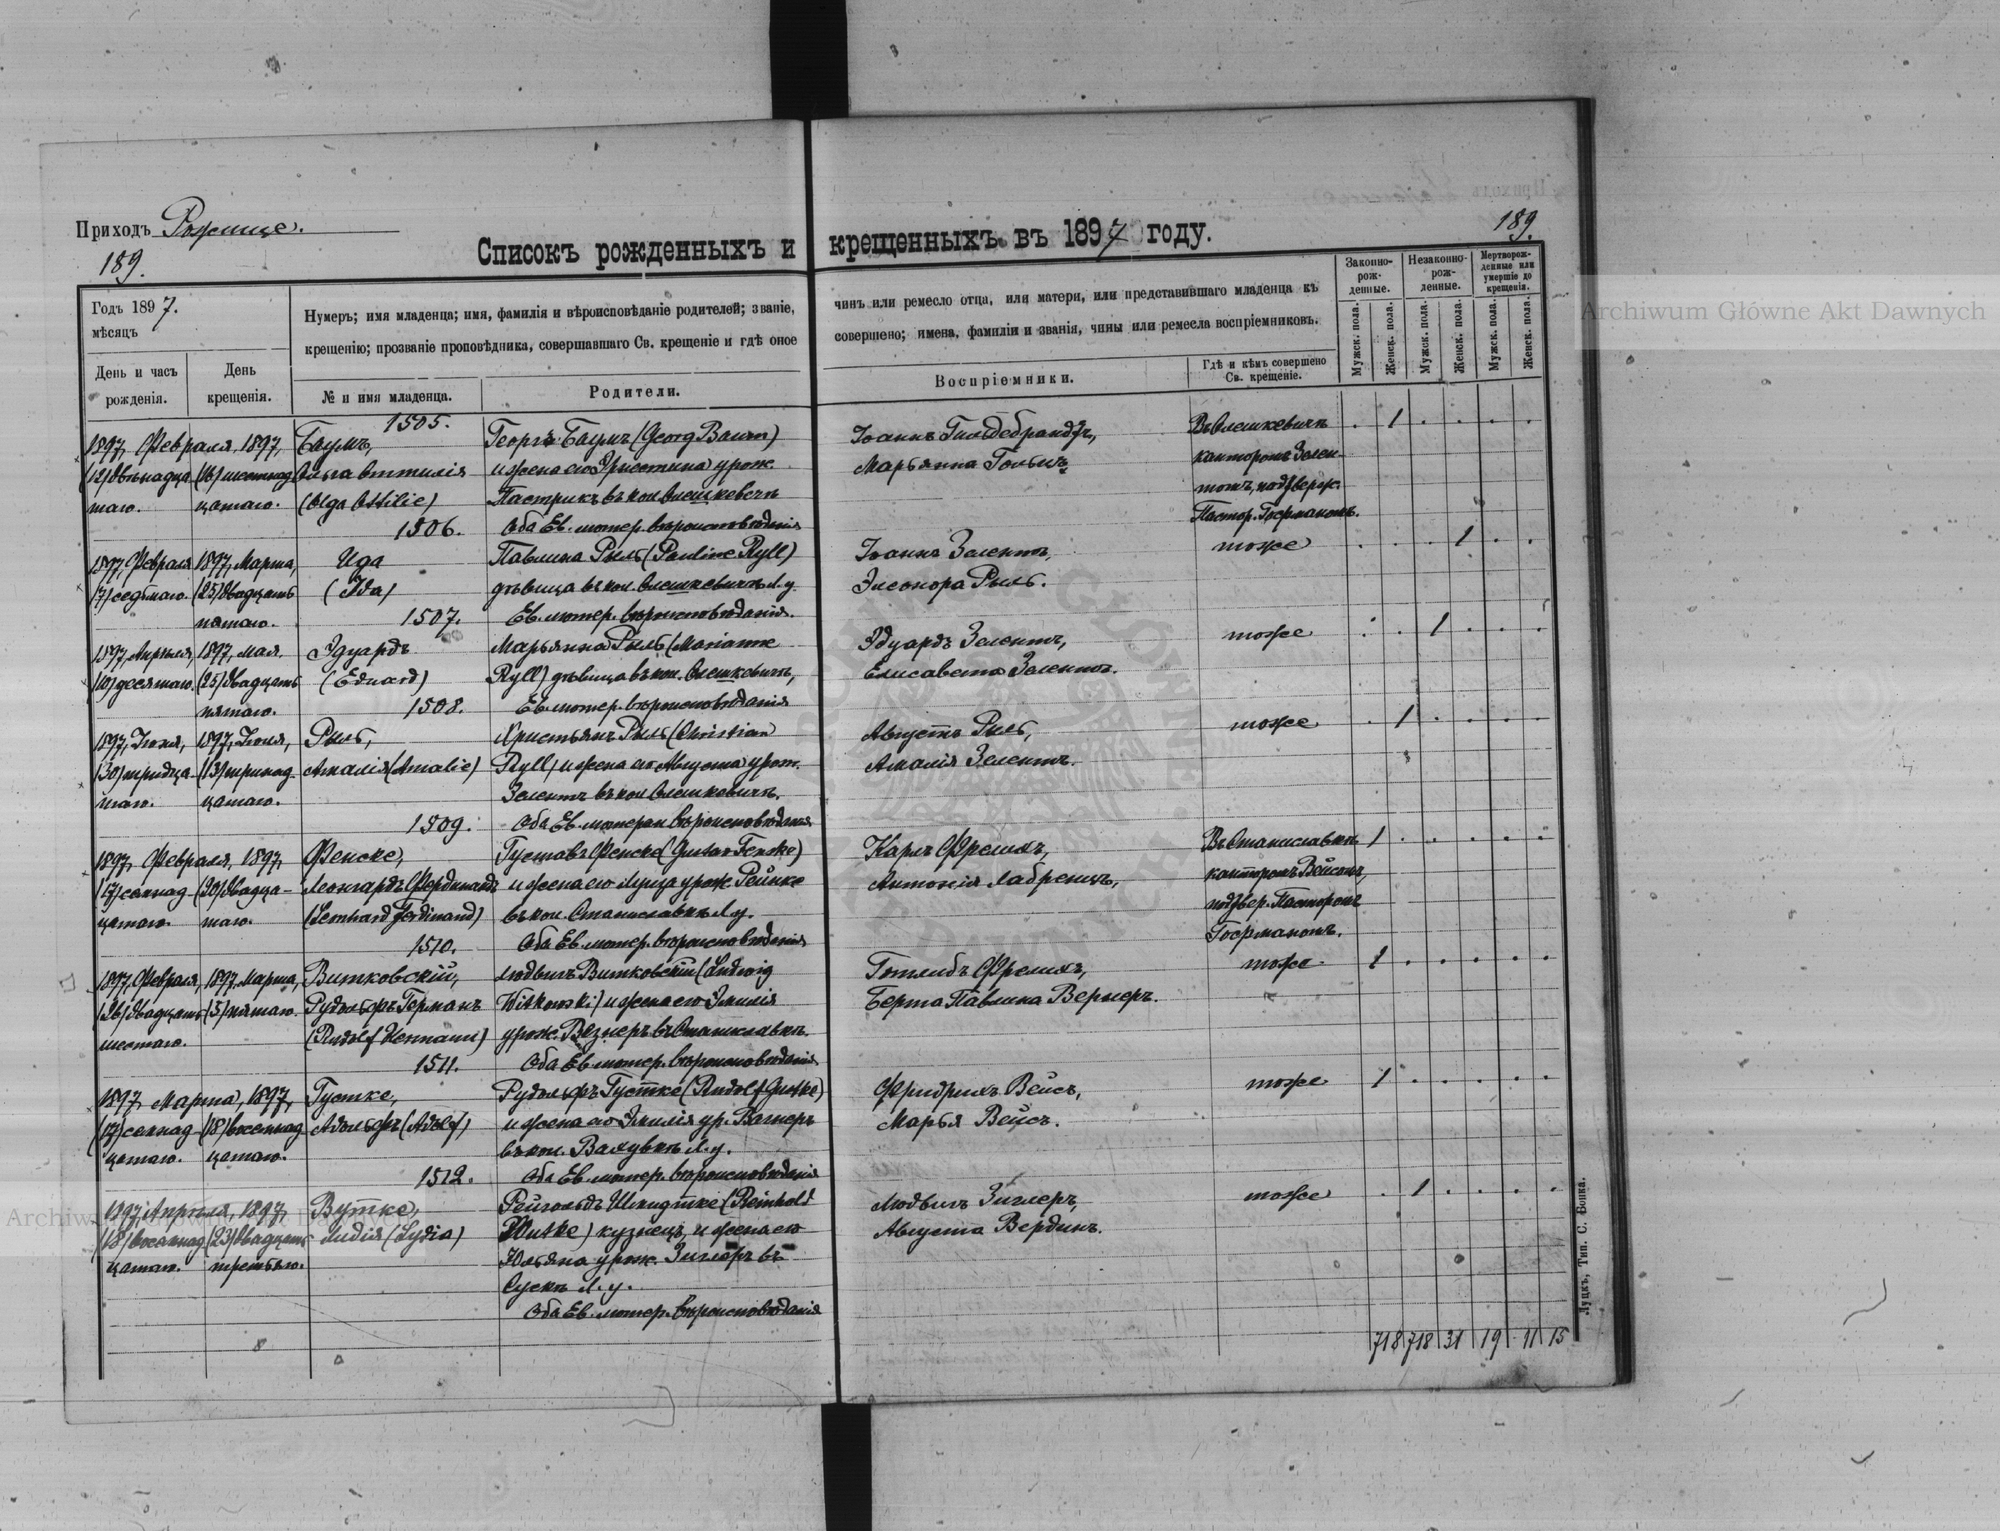 Приходъ Рожище.
189.
189.
Списокъ рожденныхъ и крещенныхъ въ 1897 году.
Годъ 1897.
мѣсяцъ
День и часъ рожденія.
День крещенія.
Нумеръ; имя младенца; имя, фамилія и вѣроисповѣданіе родителей; званіе,
крещенію; прозваніе проповѣдника, совершавшаго Св. крещеніе и гдѣ оное
№ и имя младенца.
Родители.
чинъ или ремесло отца, или матери, или представившаго младенца къ
совершено; имена, фамиліи и званія, чины или ремесла воспріемниковъ.
Воспріемники.
Гдѣ и кѣмъ совершено Св. крещеніе.
Законно-рож-денные.
Незаконно-рож-денные.
Мертворож-денные или умершіе до крещенія.
Мужск. пола.
Женск. пола.
Мужск. пола.
Женск. пола.
Мужск. пола.
Женск. пола.
1505.
1897, Февраля, 1897, Баумъ, Георгъ Баумъ (Georg Baum) Іоаннъ Гильдебрандтъ, Въ Олешкевичъ . 1 . . . .
(12) двѣнадца (16) шестнад Ольга Оттилія и жена его Христина урож. Марьянна канторомъ Зелен
таго. цатаго. (Olga Ottilie) Пастрикъ въ кол. Олешкевичъ томъ, подтверж.
1506. Оба Ев. лютер. вѣроисповѣданія Пастор. Госрманомъ.
1897, Февраля 1897, Марта, Ида Павлина Рыль (Pauline Ryll) Іоаннъ Зелентъ, тоже . . . 1 . .
(7) седьмаго. (25) двадцать (Ida) дѣвица въ кол. Олешкевичъ Л. у. Элеонора Рыль.
пятаго. 1507. Ев. лютер. вѣроисповѣданія.
1897, Апрѣля, 1897, мая. Эдуардъ Марьянна Рыль (Marianne Эдуардъ Зелентъ, тоже . . 1 . . .
(10) десятаго. (25) двадцать (Eduard) Ryll) дѣвица въ кол. Олешкевичъ, Елисавета Зелентъ.
пятаго. 1508. Ев. лютер. вѣроисповѣданія
1897, Іюня, Рыль, Христьянъ Рыль (Christian Августъ Рыль, тоже . 1 . . . .
(30) тридца- (13) тринад Амалія (Amalie) Ryll, и жена его Августа урож. Амалія Зелентъ.
таго. цатаго. Зелентъ въ кол. Олешкевичъ.
1509. Оба Ев. лютеран вѣроисповѣданія
1897, Февраля, 1897, Фенске, Густавъ Фенске (Gustav Fenske) Карлъ Фрелихъ, Въ Станиславкѣ 1 . . . . .
(17) семнад (20) двадца- Леонгардъ Фердинандъ и жена его Луиза урож. Рейнке Антонія Лабренцъ, канторомъ Вейсомъ,
цатаго. таго. (Leonhard Ferdinand) въ кол. Станиславкѣ Л. у. подтвер. Пасторомъ
1510. Оба Ев. лютер. вѣроисповѣданія Госрманомъ.
1897, Февраля, 1897, Марта, Витковскій, Людвигъ Витковскій (Ludwig Готлибъ Фрелихъ, тоже 1 . . . . .
(26) двадцать (5) пятаго. Рудольфъ Германъ Witkowski) и жена его Эмилія Берта Павлина Вернеръ.
шестаго. (Rudolf Hermann) урож. въ Станиславкѣ
1511. Оба Ев. лютер. вѣроисповѣданія
1897, Марта, 1897, Густке, Рудольфъ Густке (Rudolf Gustke) Фридрихъ Вейсъ, тоже 1 . . . . .
(17) семнад (18) восемнад Адольфъ (Adolf) и жена его Эмилія ур. Вагнеръ Марья Вейсъ.
цатаго. цатаго. въ кол. Л. у.
1512. Оба Ев. лютер. вѣроисповѣданія
1897, Апрѣля, 1897, Вутке, Рейгольдъ (Reinhold Людвигъ Зиглеръ, тоже . 1 . . . .
(18) восемнад (23) двадцать Лидія (Lydia) Wutke) кузнецъ, и жена его Августа Вердинъ.
цатаго. третьяго. Юльяна урож. Зиглеръ въ
Сускѣ Л. у.
Оба Ев. лютер. вѣроисповѣданія
718 718 31 19 11 15
Луцкъ, Тип. С. Бонка.
Archiwum Główne Akt Dawnych